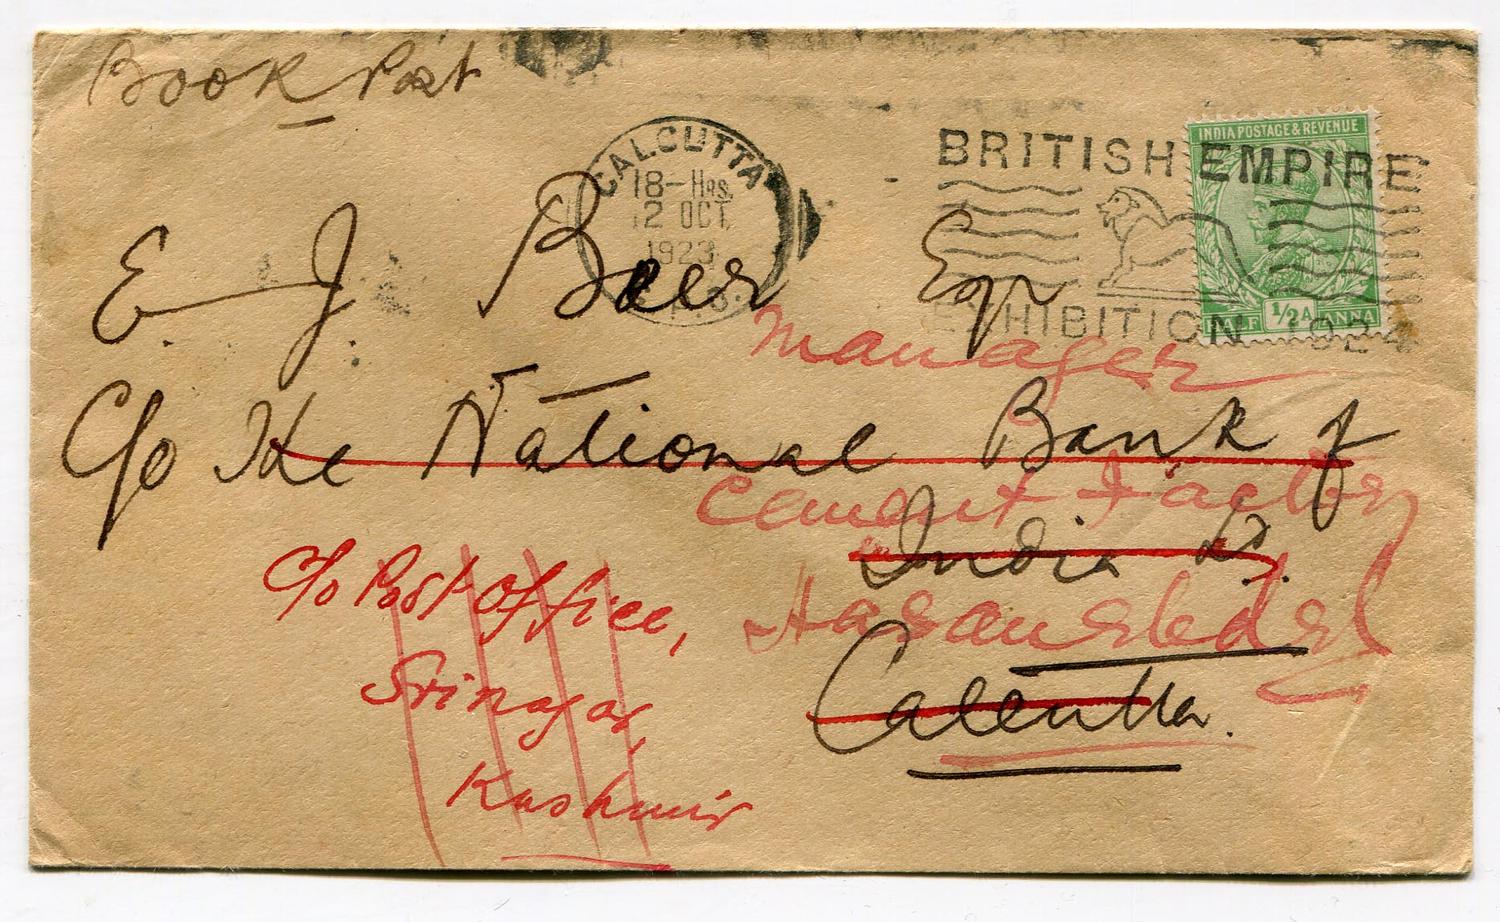 Book Post
CALCUTTA
18-HRS.
12 OCT.
1923
BRITISH EMPIRE
EXHIBITION 1924
INDIA POSTAGE & REVENUE
HALF 1/2A ANNA
E. J. Beer Esqr
Manager
C/o The National Bank of
Cement Factory
India Ld.
Hasanabdal
Calcutta.
C/o Post Office,
Srinagar,
Kashmir